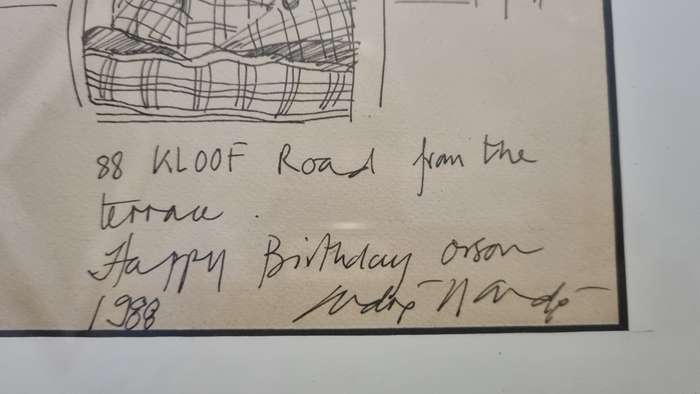 88 KLOOF Road from the
terrace.
Happy Birthday Orson
1988